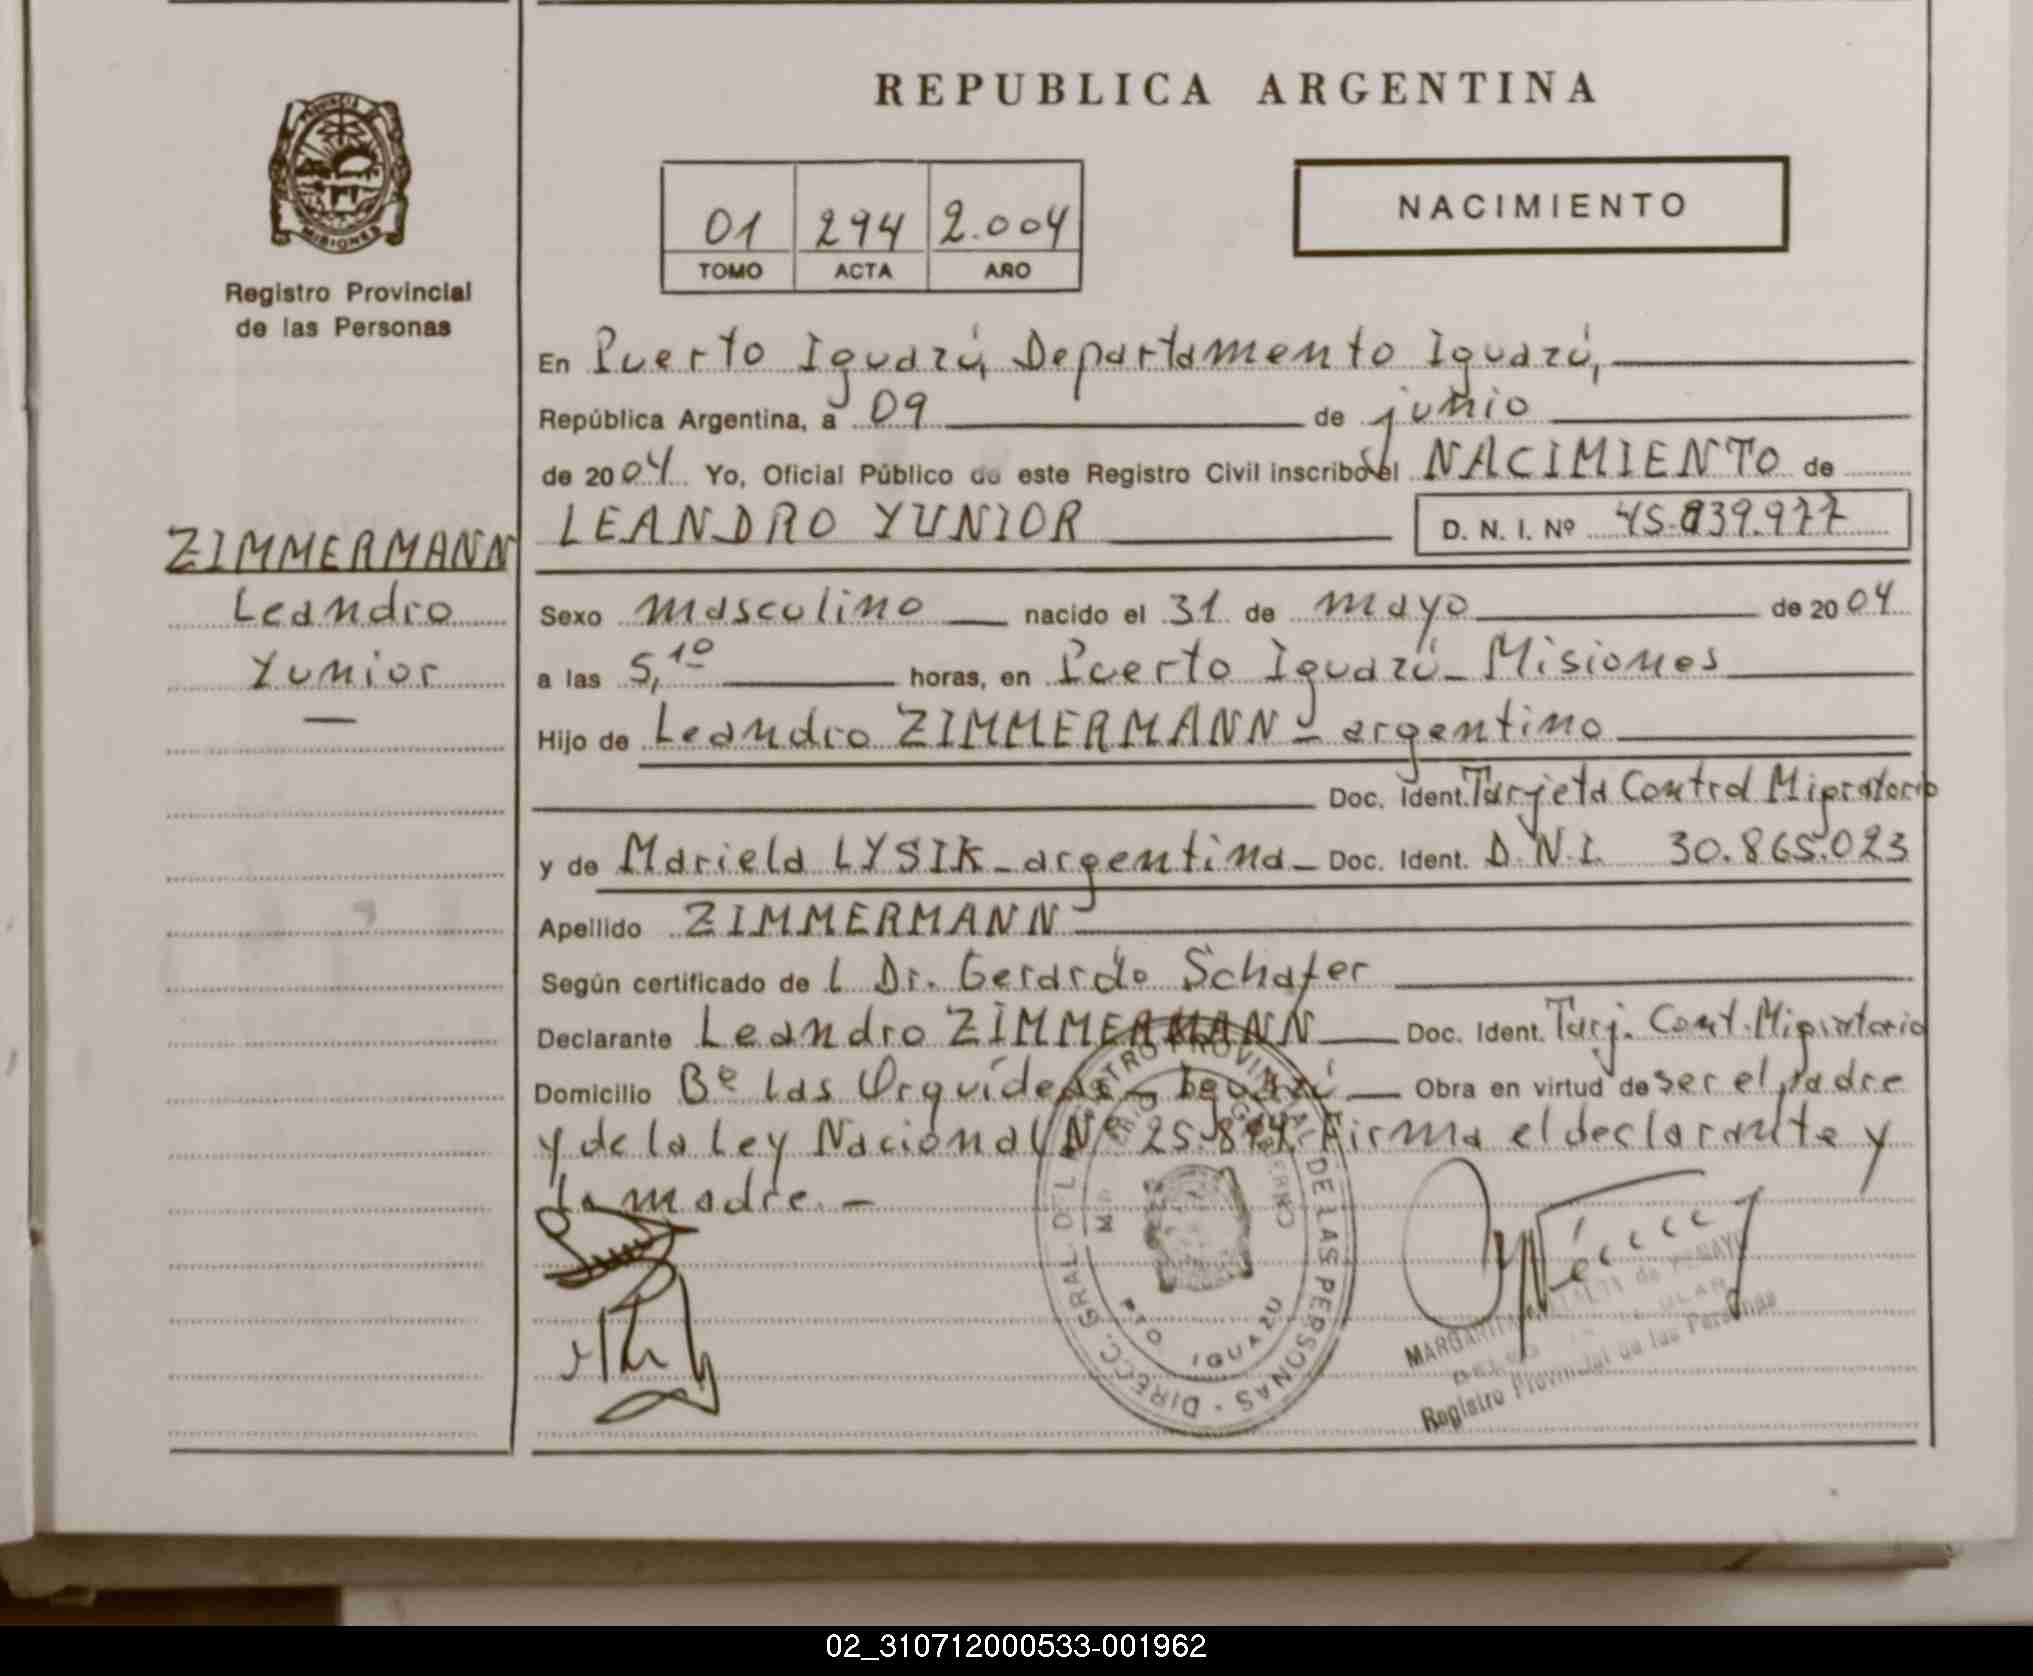 REPUBLICA ARGENTINA
PROVINCIA
MISIONES
Registro Provincial
de las Personas
01 294 2.004
TOMO ACTA AÑO
NACIMIENTO
En Puerto Iguazú, Departamento Iguazú,
República Argentina, a 09 de junio
de 2004 Yo, Oficial Público de este Registro Civil inscribo el NACIMIENTO de
LEANDRO YUNIOR D. N. I. Nº 45.839.977
ZIMMERMANN
Leandro
Yunior
Sexo masculino nacido el 31 de mayo de 2004
a las 5,10 horas, en Puerto Iguazú - Misiones
Hijo de Leandro ZIMMERMANN - argentino
Doc. Ident. Tarjeta Control Migratorio
y de Mariela LYSIK - argentina - Doc. Ident. D.N.I. 30.865.023
Apellido ZIMMERMANN
Según certificado de l Dr. Gerardo Schafer
Declarante Leandro ZIMMERMANN Doc. Ident. Tarj. Cont. Migratorio
Domicilio Bº Las Orquídeas - Iguazú Obra en virtud de ser el padre
y de la Ley Nacional Nº 25.819. Firma el declarante y
la madre. -
DIRECC. GRAL. DEL REGISTRO PROVINCIAL DE LAS PERSONAS
PTO IGUAZU
Registro Provincial de las Personas
02_310712000533-001962